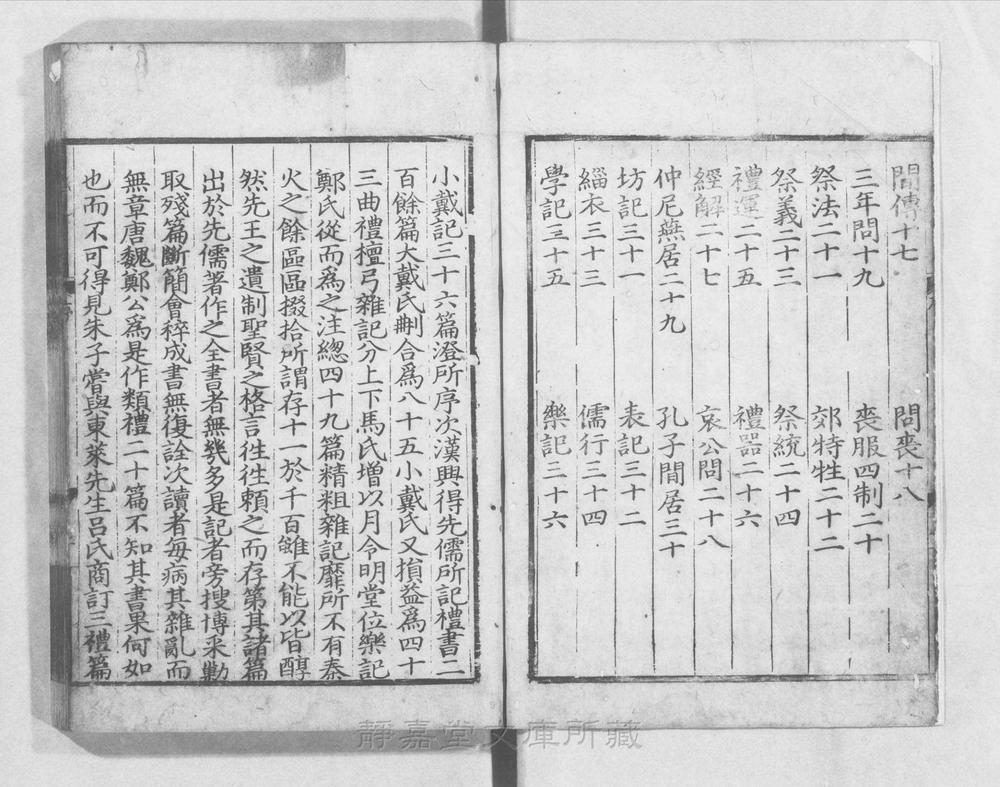 間傳十七 問喪十八
三年問十九 喪服四制二十
祭法二十一 郊特牲二十二
祭義二十三 祭統二十四
禮運二十五 禮器二十六
經解二十七 哀公問二十八
仲尼燕居二十九 孔子閒居三十
坊記三十一 表記三十二
緇衣三十三 儒行三十四
學記三十五 樂記三十六
小戴記三十六篇澄所序次漢興得先儒所記禮書二
百餘篇大戴氏刪合爲八十五小戴氏又損益爲四十
三曲禮檀弓雜記分上下馬氏増以月令明堂位樂記
鄭氏從而爲之注總四十九篇精粗雜記靡所不有秦
火之餘區區掇拾所謂存十一於千百雖不能以皆醇
然先王之遺制聖賢之格言徃徃頼之而存第其諸篇
出於先儒著作之全書者無幾多是記者旁搜博采勦
取殘篇斷簡會稡成書無復詮次讀者每病其雜亂而
無章唐魏鄭公爲是作類禮二十篇不知其書果何如
也而不可得見朱子嘗與東萊先生呂氏商訂三禮篇
靜嘉堂文庫所藏